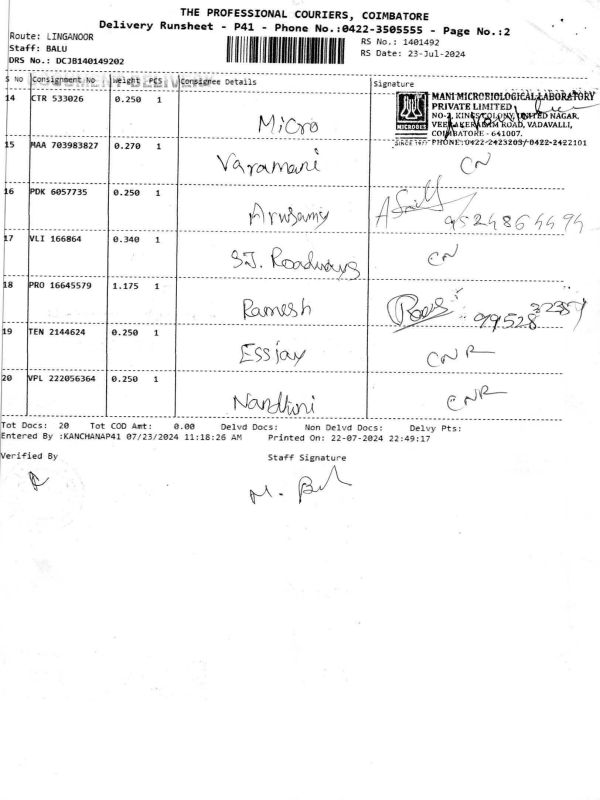 THE PROFESSIONAL COURIERS, COIMBATORE
Delivery Runsheet - P41 - Phone No.:0422-3505555 - Page No.:2
Route: LINGANOOR
Staff: BALU
DRS No.: DCJB140149202
RS No.: 1401492
RS Date: 23-Jul-2024
S No Consignment No Weight PCS Consignee Details Signature
14 CTR 533026 0.250 1 Micro
MANI MICROBIOLOGICAL LABORATORY
PRIVATE LIMITED
NO-2, KINGS COLONY, UNITED NAGAR,
VEERAKERALAM ROAD, VADAVALLI,
COIMBATORE - 641007.
PHONE: 0422-2423203/ 0422-2422101
MICROBES
SINCE 1977
15 MAA 703983827 0.270 1 Varamani CN
16 PDK 6057735 0.250 1 Arusamy 9524864494
17 VLI 166864 0.340 1 S.J. Roadways CN
18 PRO 16645579 1.175 1 Ramesh
19 TEN 2144624 0.250 1 Essjay CNR
20 VPL 222056364 0.250 1 Nandhini CNR
Tot Docs: 20 Tot COD Amt: 0.00 Delvd Docs: Non Delvd Docs: Delvy Pts:
Entered By :KANCHANAP41 07/23/2024 11:18:26 AM Printed On: 22-07-2024 22:49:17
Verified By Staff Signature